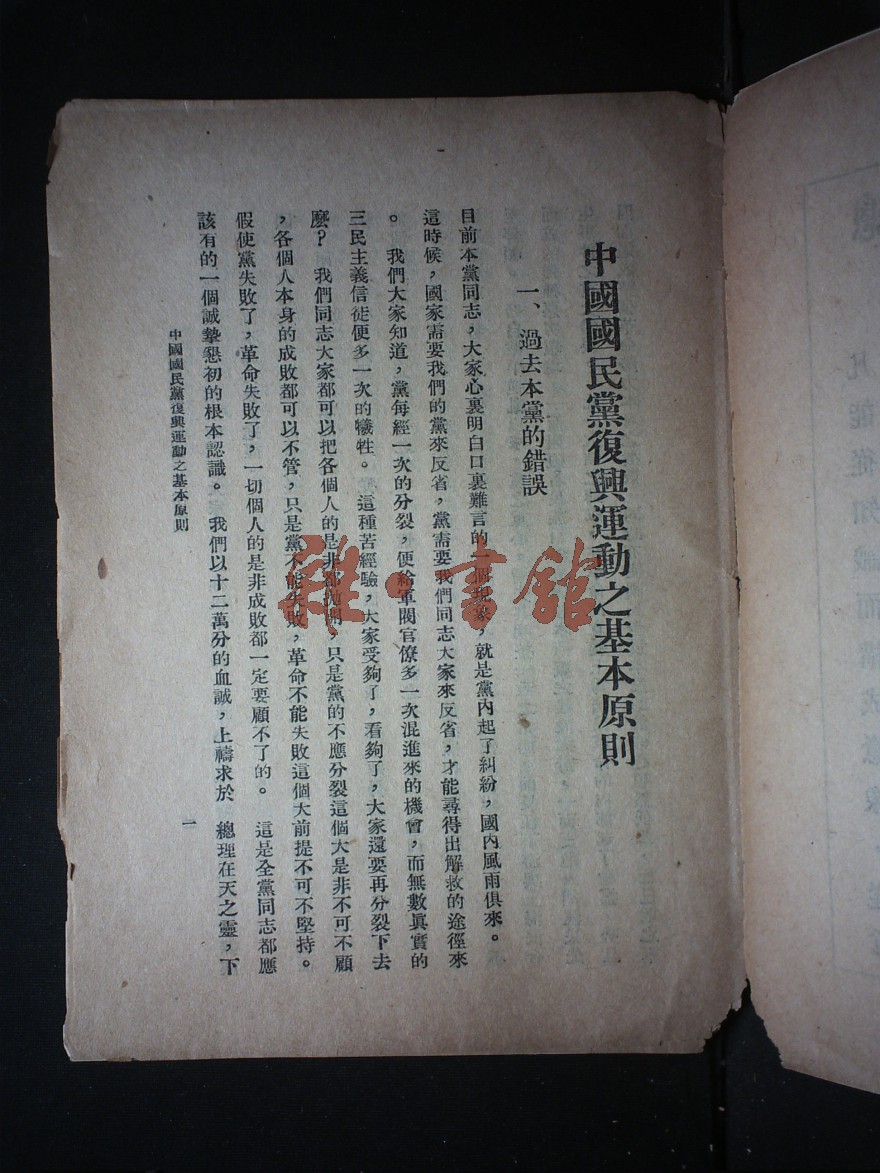 中國國民黨復興運動之基本原則
一、過去本黨的錯誤
目前本黨同志，大家心裏明白口裏難言的一個現象，就是黨內起了糾紛，國內風雨俱來。
這時候，國家需要我們的黨來反省，黨需要我們同志大家來反省，才能尋得出解救的途徑來
。我們大家知道，黨每經一次的分裂，便給軍閥官僚多一次混進來的機會，而無數眞實的
三民主義信徒便多一次的犧牲。這種苦經驗，大家受夠了，看夠了，大家還要再分裂下去
麼？我們同志大家都可以把各個人的是非都拋開，只是黨的不應分裂這個大是非不可不顧
，各個人本身的成敗都可以不管，只是黨不能失敗，革命不能失敗這個大前提不可不堅持。
假使黨失敗了，革命失敗了，一切個人的是非成敗都一定要顧不了的。這是全黨同志都應
該有的一個誠摯懇初的根本認識。我們以十二萬分的血誠，上禱求於總理在天之靈，下
中國國民黨復興運動之基本原則
一
雜·書館